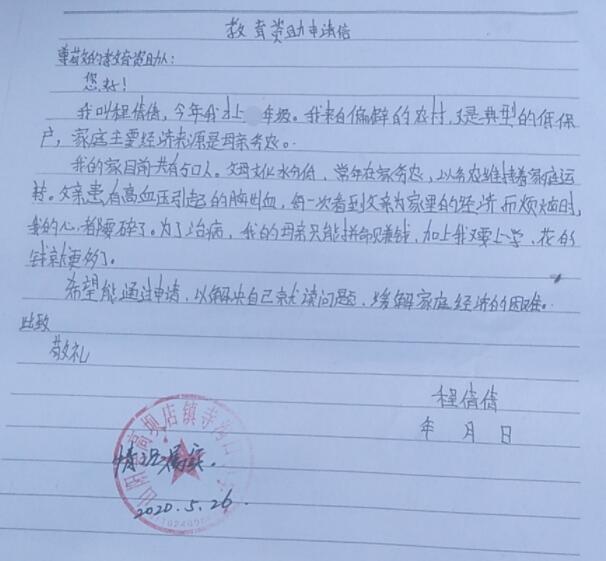 教育资助申请信
尊敬的教育资助人：
您好！
我叫程倩倩，今年我上年级。我来自偏僻的农村，又是典型的低保
户，家庭主要经济来源是母亲务农。
我的家目前共有5口人。父母文化水分低，常年在家务农，以务农维持着家庭运
转。父亲患有高血压引起的脑出血，每一次看到父亲为家里的经济而烦恼时，
我的心都要碎了。为了治病，我的母亲只能拼命赚钱，加上我又要上学，花的
钱就更多了。
希望能通过申请，以解决自己就读问题，缓解家庭经济的困难。
此致
敬礼
程倩倩
年 月 日
山阴县高坝店镇寺
情况属实.
2020.5.26.